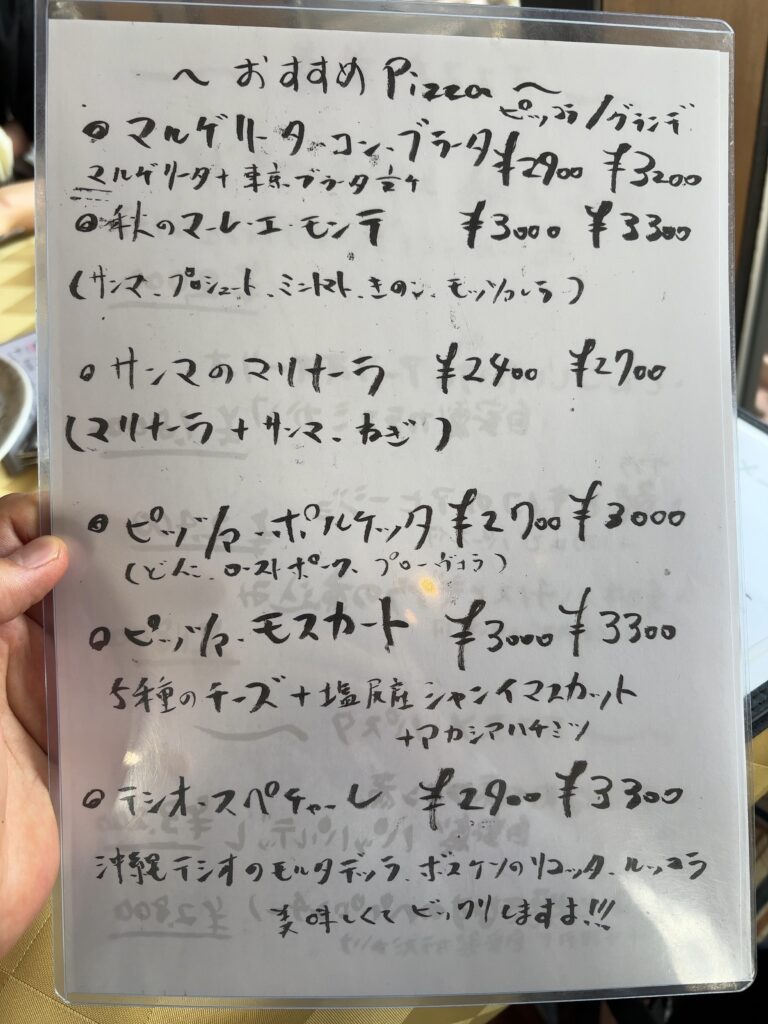 〜 おすすめ Pizza 〜
ピッコラ / グランデ
• マルゲリータ・コン・ブラータ ¥2900 ¥3200
マルゲリータ+東京ブラータ
• 秋のマーレ・エ・モンテ ¥3000 ¥3300
(サンマ、プロシュート、ミニトマト、きのこ、モッツァレラ)
• サンマのマリナーラ ¥2400 ¥2700
(マリナーラ + サンマ、ねぎ)
• ピッツァ・ポルケッタ ¥2700 ¥3000
(どんこ、ローストポーク、プローヴォラ)
• ピッツァ・モスカート ¥3000 ¥3300
5種のチーズ+塩尻産シャインマスカット
+アカシアハチミツ
• テシオ・スペチャーレ ¥2900 ¥3300
沖縄テシオのモルタデッラ、ボスケソのリコッタ、ルッコラ
美味しくてビックリしますよ!!!